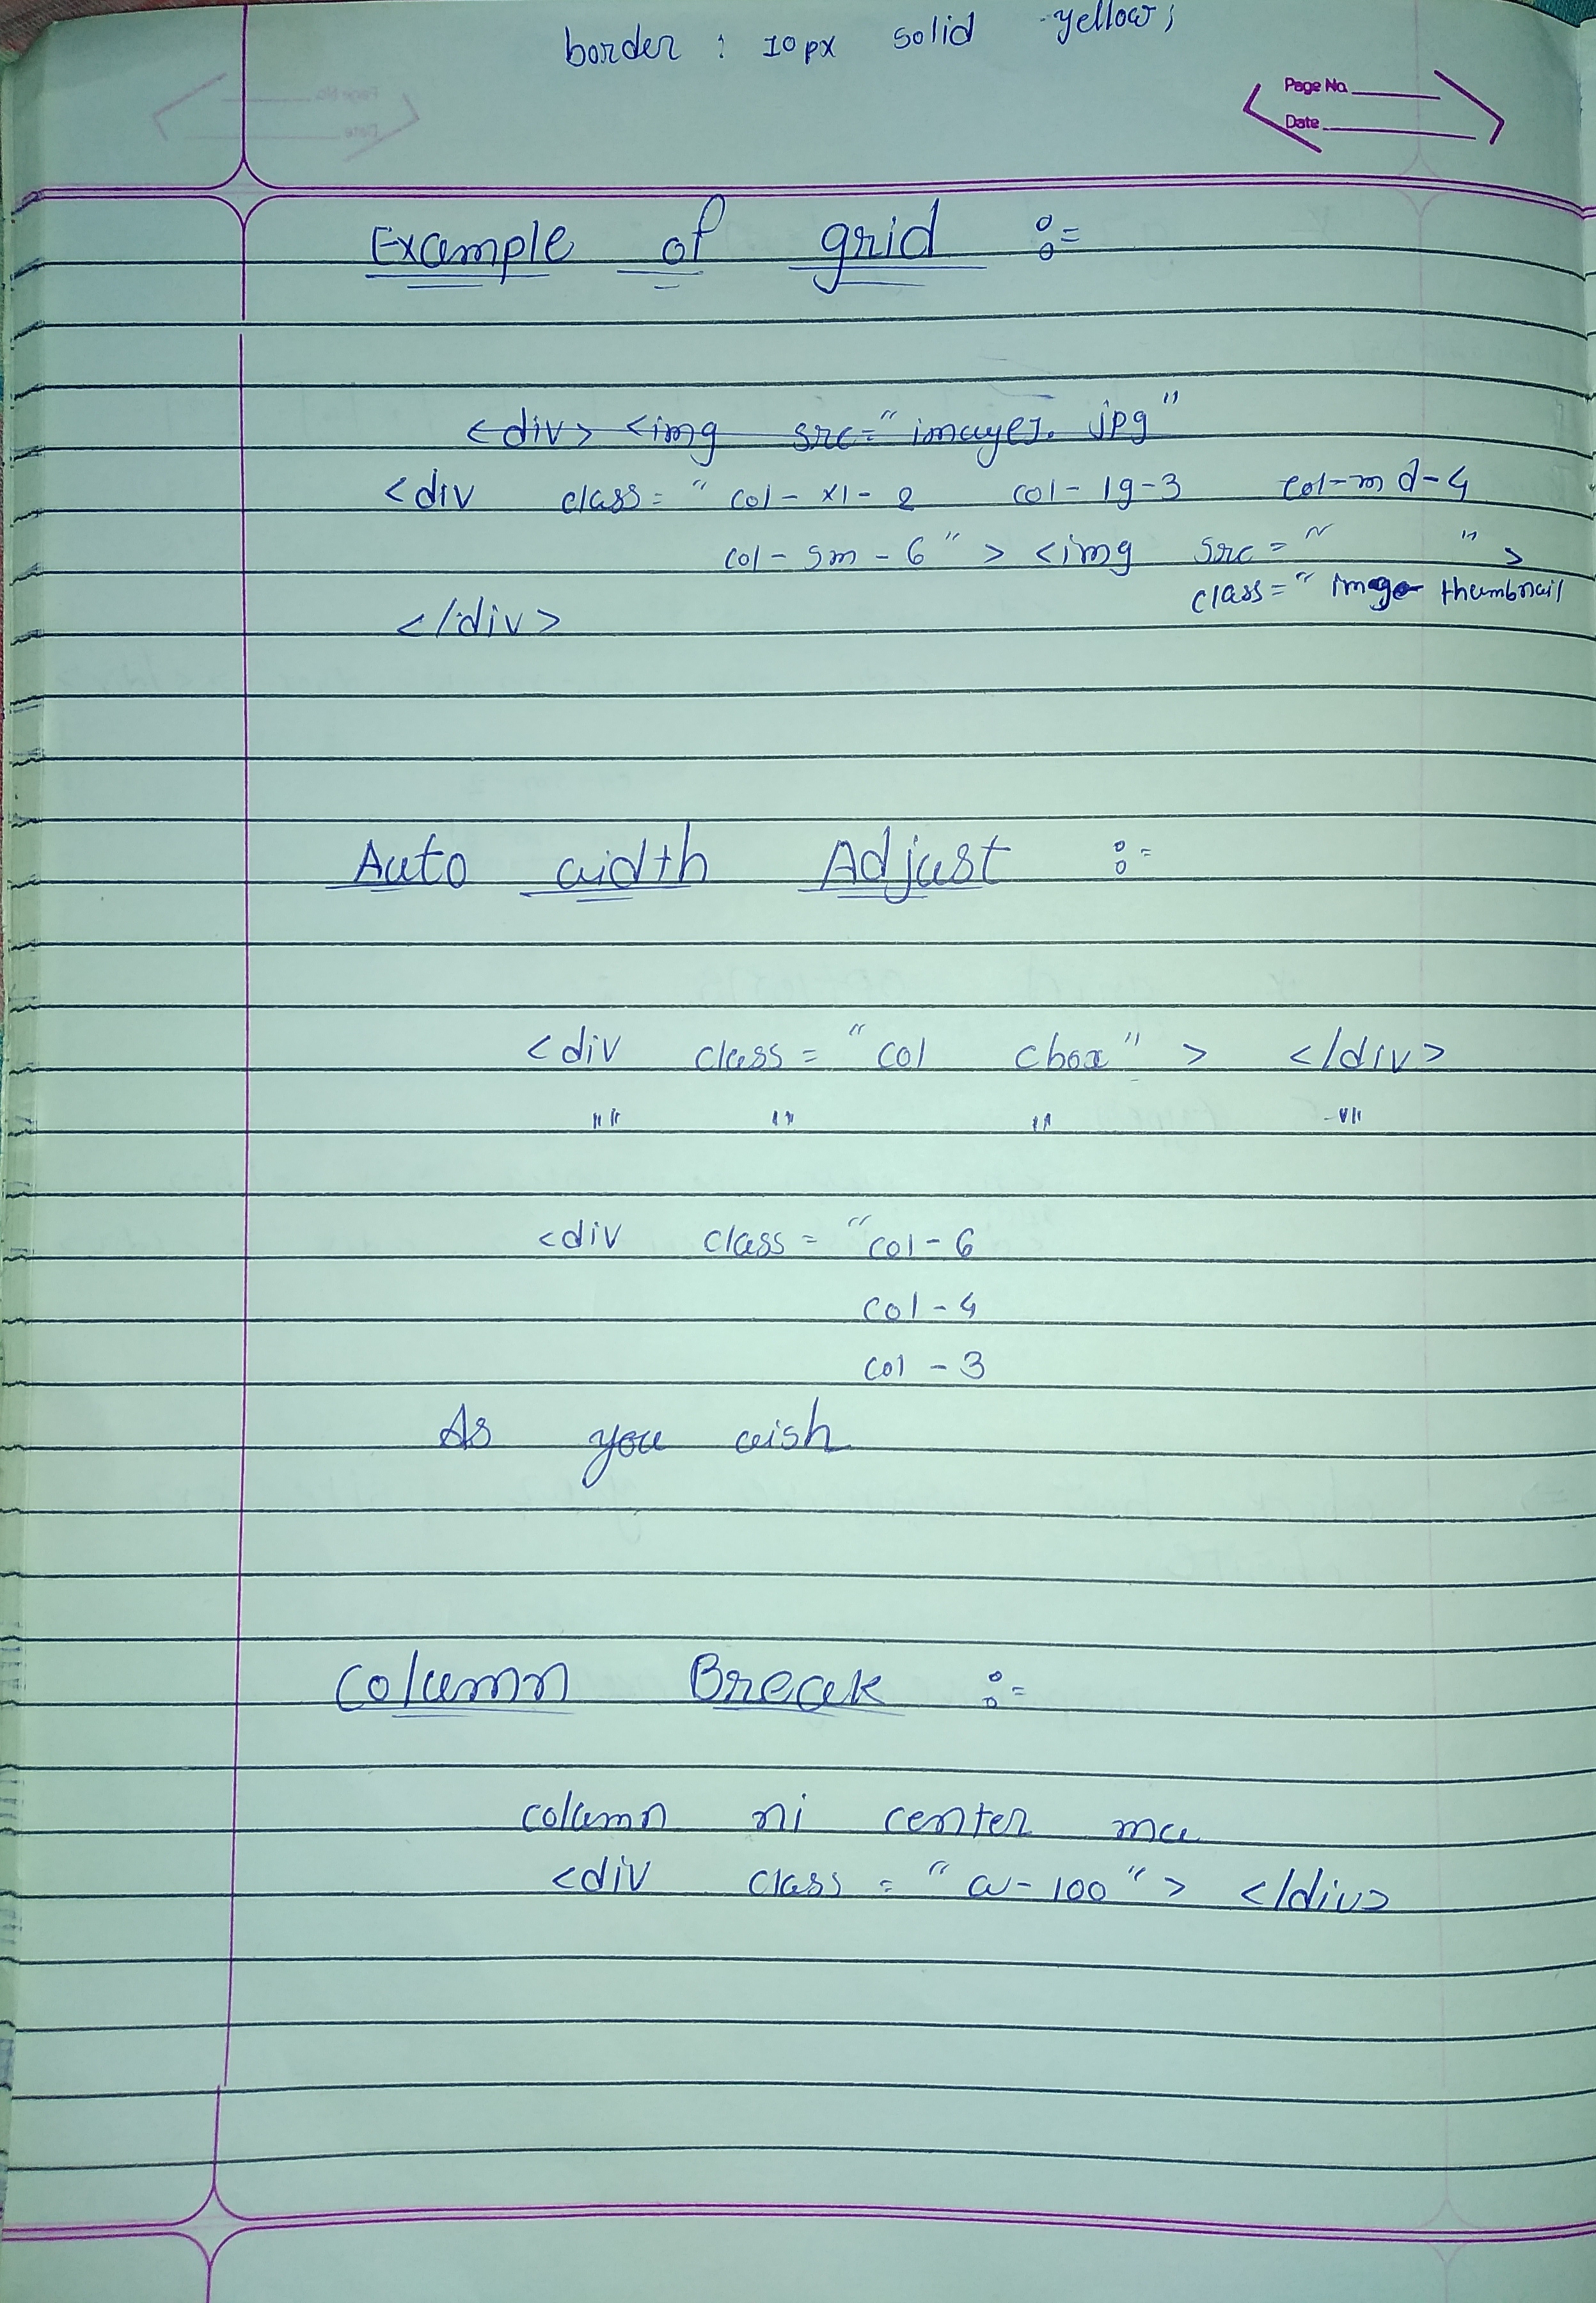 border : 10px solid yellow;
Page No.
Date
Example of grid :=
<div> <img src="images. jpg"
<div class = "col - xl - 2 col - lg - 3 col - md - 4
col - sm - 6 " > <img src = " " >
class = " image thumbnail
</div>
Auto width Adjust :=
<div class = "col cbox" > </div>
"" "" "" ""
<div class = "col - 6
col - 4
col - 3
As you wish
Column Break :=
column ni center ma
<div class = " w - 100 " > </div>